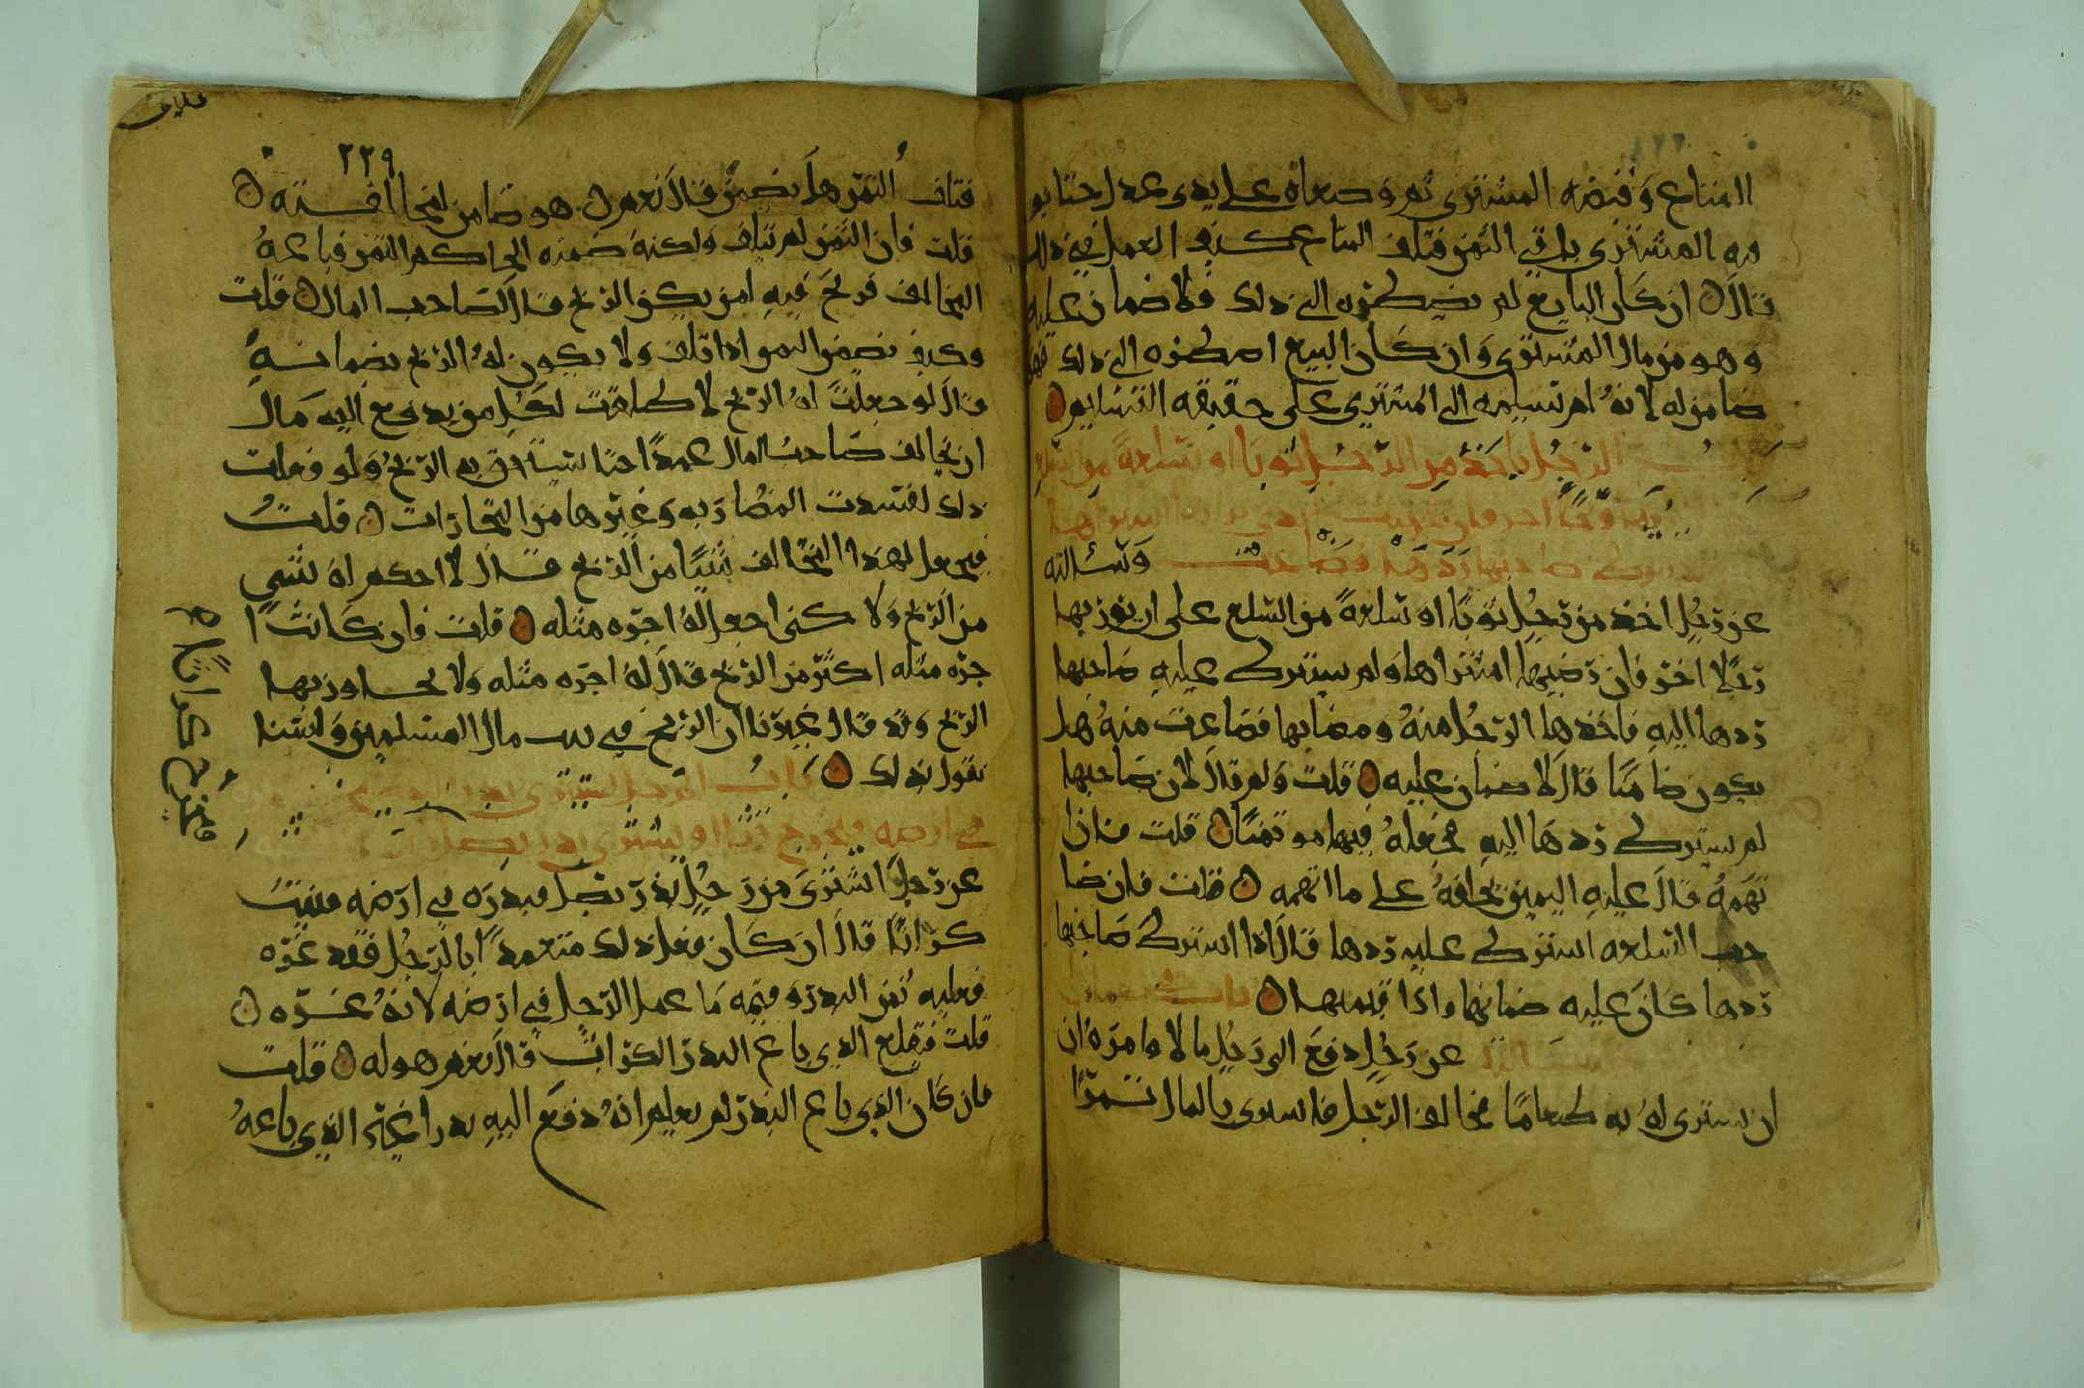 المتاع وقبضه المشتري ثم وضعاه على يدي عدل حتا يو
فيه المشتري باقي الثمن فتلف المتاع كيف العمل في ذلك
قال ان كان البايع لم يضطره الى ذلك فلا ضمان عليه
وهو من مال المشتري وان كان البيع اضطره الى ذلك فهو
ضامن له لانه لم تسليمه الى المشتري على حقيقه التسليم
باب الرجل ياخذ من الرجل ثوبا او سلعة من السلع
وسالته
عن رجل اخذ من رجل ثوبا او سلعة من السلع على ان يوريها
رجلا اخر فان رضيها اشتراها ولم يشترط عليه صاحبها
ردها اليه فاخذها الرجل منه ومضا بها فضاعت منه هل
يكون ضامنا قال لا ضمان عليه قلت ولم قال لان صاحبها
لم يشترط ردها اليه فجعله فيها موتمنا قلت فاذا
تهمه قال عليه اليمين يحلفه على ما اتهمه قلت فان صا
حب السلعه اشترط عليه ردها قال اذا اشترط صاحبها
ردها كان عليه ضمانها واذا قيمتها باب
عن رجل دفع الى رجل مالا وامره ان
ان يشتري له به طعاما فخالف الرجل فاشترى بالمال تمرا
٢٢٩
فتلف التمر هل يضمن قال نعم هو ضامن لمخالفته
قلت فان التمر لم يتلف ولكنه ضمنه الحاكم التمر فباعه
المخالف فربح فيه لمن يكون الربح قال لصاحب المال قلت
وكيف تضمن المو اذا تلف ولا يكون له الربح بضمانه
قال لو جعلت له الربح لاطلقت لكل من يدفع اليه مال
ان يخالف صاحب المال عمدا حتا يستاحق به الربح ولو فعلت
ذلك لفسدت المضاربه وغيرها من التجارات قلت
فيجعل لهذا المخالف شيئا من الربح قال لا احكم له بشي
من الربح ولا كني اجعل له اجره مثله قلت فان كانت ا
جره مثله اكثر من الربح قال له اجره مثله ولا يجاوز بها
الربح وقد قال غيرنا ان الربح في بيت مال المسلمين ولسنا
نقول بذلك باب الرجل يشتري
في ارضه فيخرج او يشتري بذر بصل
عن رجل اشترى من رجل بذر بصل فبذره في ارضه فنبت
كراثا قال ان كان فعل ذلك متعمدا بالرجل فقد غره
فعليه ثمن البذر وقيمه ما عمل الرجل في ارضه لانه غره
قلت فيقلع الذي باع البذر الكراث قال نعم هو له قلت
فان كان الذي باع البذر لم يعلم انه دفع اليه بذرا غير الذي باعه